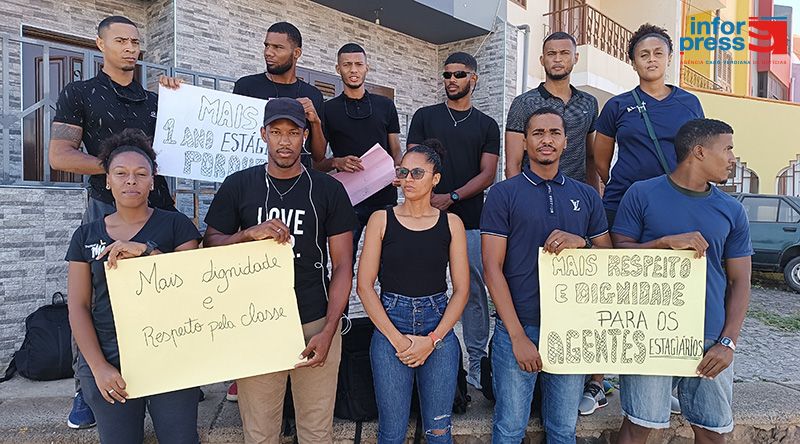 infor
press
AGÊNCIA CABO-VERDIANA DE NOTÍCIAS
MAIS
1 ANO ESTÁGI
PORQUÊ
LOVE
Mais dignidade
e
Respeito pela classe
MAIS RESPEITO
E DIGNIDADE
PARA OS
AGENTES ESTAGIÁRIOS